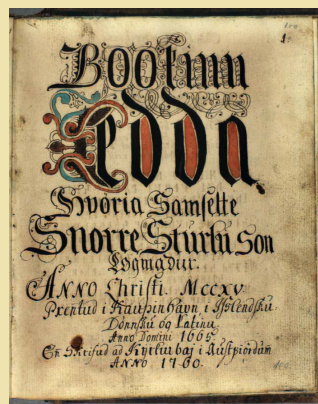 Bookinn
Edda
Hvöria Samsette
Snorre Sturlu Son
Lögmadur.
ANNO Christi MCCXV.
Prentud i Kaupinhavn i Islendsku
Dönsku og Latinu.
Anno Domini 1665.
En Skrifud ad Kyrkubæ i Austfiördum
ANNO 1760.